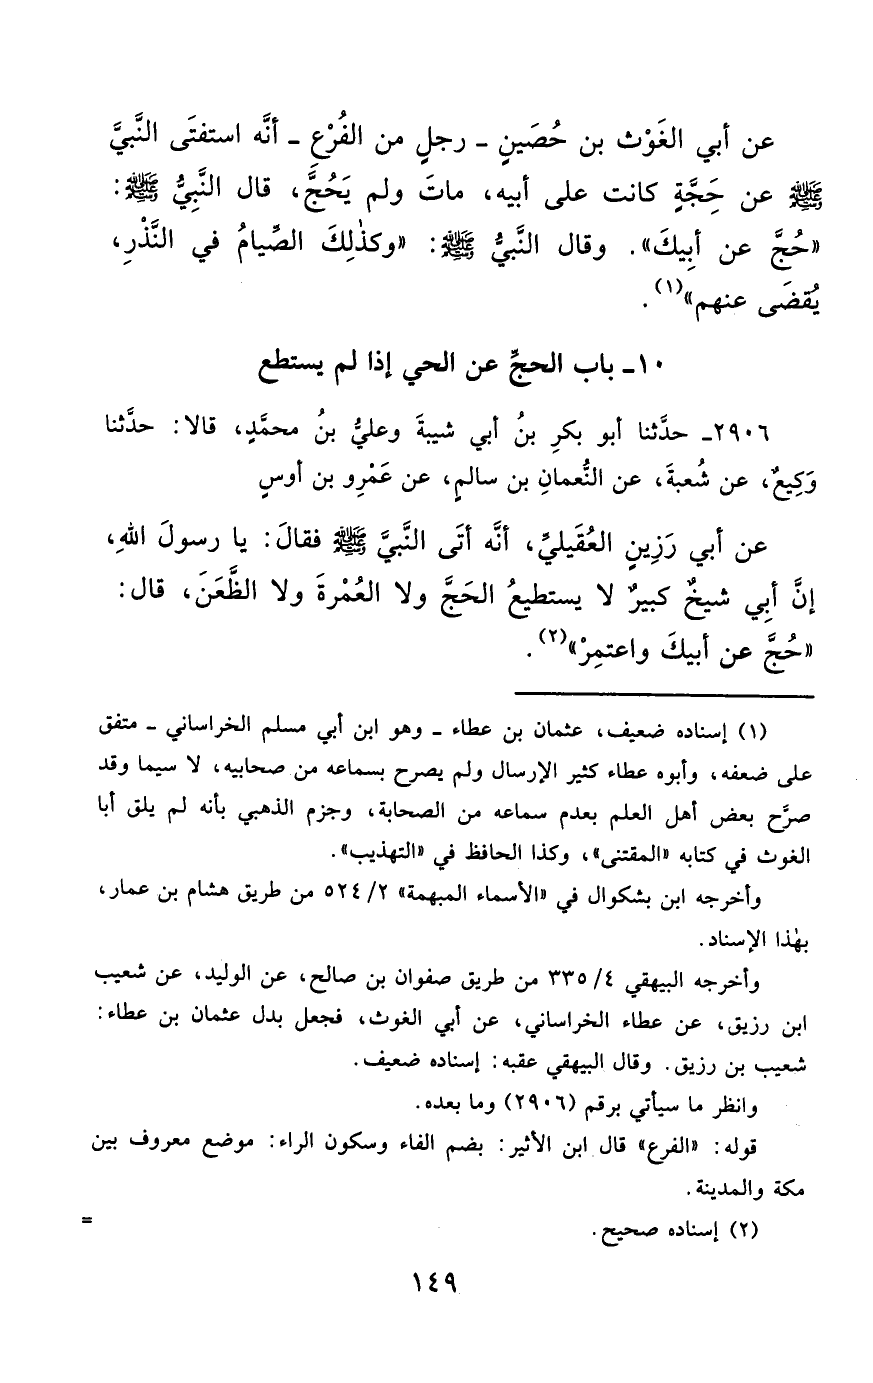 عن أبي الغَوْث بن حُصَينٍ ـ رجلٍ من الفُرْعِ ـ أنَّه استفتَى النَّبيَّ
ﷺ عن حِجَّةٍ كانت على أبيه، ماتَ ولم يَحُجَّ، قال النَّبِيُّ ﷺ:
«حُجَّ عن أبِيكَ». وقال النَّبيُّ ﷺ: «وكذٰلِكَ الصِّيامُ في النَّذْرِ،
يُقضَى عنهم»(١).
١٠ـ باب الحجِّ عن الحي إذا لم يستطع
٢٩٠٦ـ حدَّثنا أبو بكرِ بنُ أبي شيبةَ وعليُّ بنُ محمَّدٍ، قالا: حدَّثنا
وَكِيعٌ، عن شُعبةَ، عن النُّعمانِ بن سالمٍ، عن عَمْرِو بن أوسٍ
عن أبي رَزِينٍ العُقَيليِّ، أنَّه أتَى النَّبيَّ ﷺ فقالَ: يا رسولَ اللهِ،
إنَّ أبِي شيخٌ كبيرٌ لا يستطيعُ الحَجَّ ولا العُمْرةَ ولا الظَّعَنَ، قال:
«حُجَّ عن أبيكَ واعتمِرْ»(٢).
(١) إسناده ضعيف، عثمان بن عطاء ـ وهو ابن أبي مسلم الخراساني ـ متفق
على ضعفه، وأبوه عطاء كثير الإرسال ولم يصرح بسماعه من صحابيه، لا سيما وقد
صرَّح بعض أهل العلم بعدم سماعه من الصحابة، وجزم الذهبي بأنه لم يلق أبا
الغوث في كتابه «المقتنى»، وكذا الحافظ في «التهذيب».
وأخرجه ابن بشكوال في «الأسماء المبهمة» ٥٢٤/٢ من طريق هشام بن عمار،
بهٰذا الإسناد.
وأخرجه البيهقي ٣٣٥/٤ من طريق صفوان بن صالح، عن الوليد، عن شعيب
ابن رزيق، عن عطاء الخراساني، عن أبي الغوث، فجعل بدل عثمان بن عطاء:
شعيب بن رزيق. وقال البيهقي عقبه: إسناده ضعيف.
وانظر ما سيأتي برقم (٢٩٠٦) وما بعده.
قوله: «الفرع» قال ابن الأثير: بضم الفاء وسكون الراء: موضع معروف بين
مكة والمدينة.
(٢) إسناده صحيح. =
١٤٩